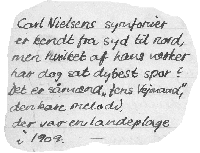 Carl Nielsens symfonier
er kendt fra syd til nord,
men hvilket af hans værker
har dog sat dybest spor?
Det er såmænd „Jens Vejmand“,
den bare melodi,
der var en landeplage
i 1909.